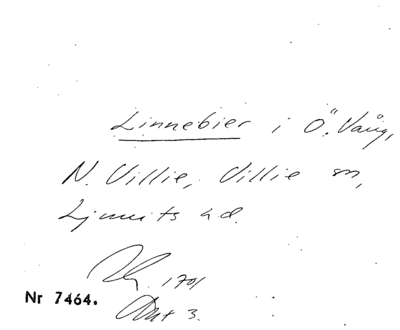 Linnebier i Ö. Vång,
N. Villie, Villie sn,
Ljunits hd.
1701
Akt 3.
Nr 7464.